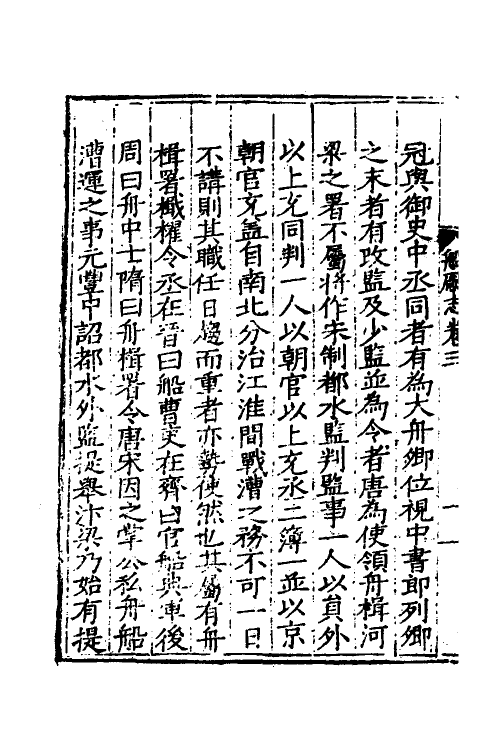 船廠志卷三
冠與御史中丞同者有為大舟卿位視中書郎列卿
之末者有改監及少監並為令者唐為使領舟楫河
梁之署不屬將作宋制都水監判監事一人以員外
以上充同判一人以朝官以上充丞二簿一並以京
朝官充蓋自南北分治江淮間戰漕之務不可一日
不講則其職任日趨而重者亦勢使然也其屬有舟
楫署檝櫂令丞在晉曰船曹吏在齊曰官船典軍後
周曰舟中士隋曰舟楫署令唐宋因之掌公私舟船
漕運之事元豐中詔都水外監提舉汴梁乃始有提